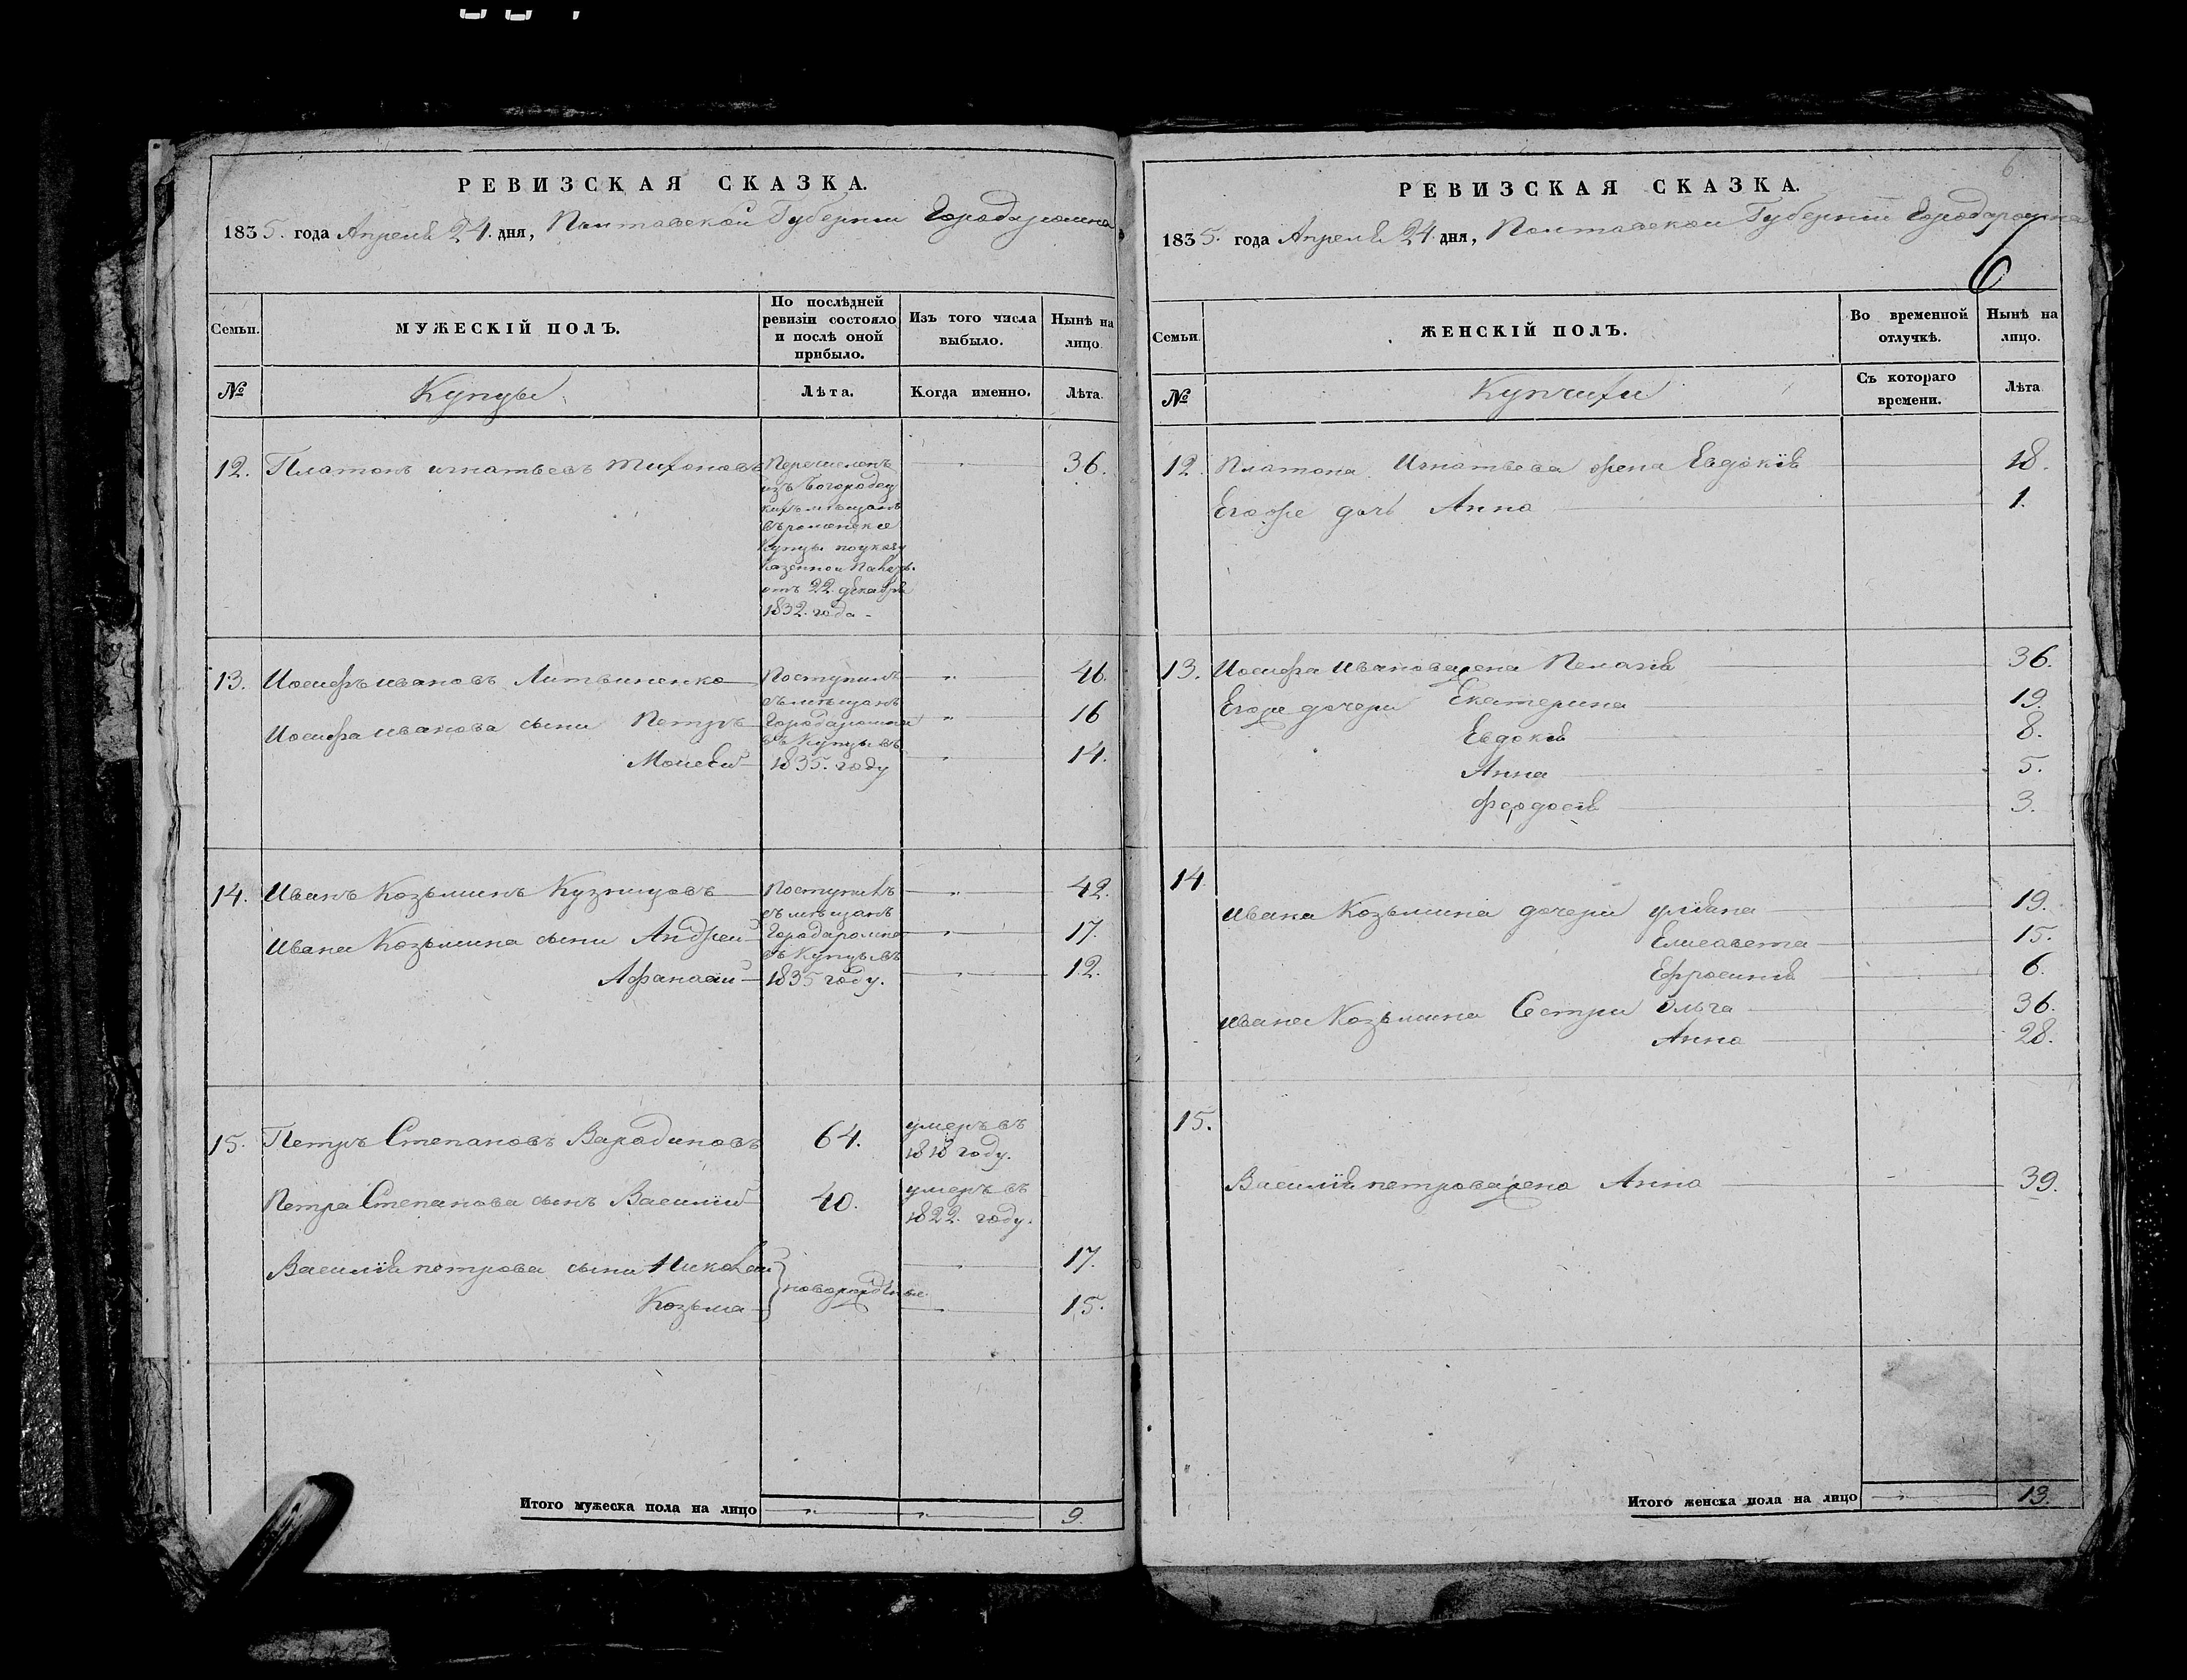 РЕВИЗСКАЯ СКАЗКА.
1835. года Апреля 24. дня, Полтавской Губернии Города ромна
Семьи.
МУЖЕСКІЙ ПОЛЪ.
По послѣдней
ревизіи состояло
и послѣ оной
прибыло.
Изъ того числа
выбыло.
Нынѣ на
лицо.
№
Купцы
Лѣта.
Когда именно.
Лѣта.
12. Платонъ игнатьевъ тихоновъ
Перечисленъ
изъ Богородец
кихъ мѣщанъ
въ роменские
Купцы по указу
Казенной Палаты
отъ 22. декабря
1832. года
36.
13. Иосифъ ивановъ Литвиненко
46.
Иосифа иванова сыни Петръ
16
Моисей
14.
Поступилъ
съ мѣщанъ
Города ромна
въ Купцы въ
1835. году
14. Иванъ Козьминъ Кузнецовъ
42.
Ивана Козьмина сыни Андрей
17.
Афанасий
12.
Поступилъ
съ мѣщанъ
Города ромна
въ Купцы въ
1835 году.
15. Петръ Степановъ Вародиновъ
64.
умеръ въ
1818 году.
Петра Степанова сынъ Василий
40.
умеръ въ
1822. году.
Василия петрова сыни Николай
17.
Козьма
новорожденые
15.
Итого мужеска пола на лицо
9.
6.
РЕВИЗСКАЯ СКАЗКА.
1835. года Апреля 24. дня, Полтавской Губерніи Города ромна
6
Семьи.
ЖЕНСКІЙ ПОЛЪ.
Во временной
отлучкѣ.
Нынѣ на
лицо.
№
Купчихи
Съ котораго
времени.
Лѣта
12. Платона Игнатьева жена Евдокія 18.
Его же дочь Анна 1.
13. Иосифа Иванова жена Пелагія 36.
Его же дочери Екатерина 19.
Евдокія 8.
Анна 5.
Феодосія 3.
14
Ивана Козьмина дочери уліана 19.
Елисавета 15.
Ефросинія 6.
Ивана Козьмина Сестри Ольга 36.
Анна 28.
15.
Василія петрова жена Анна 39.
Итого женска пола на лицо
13.